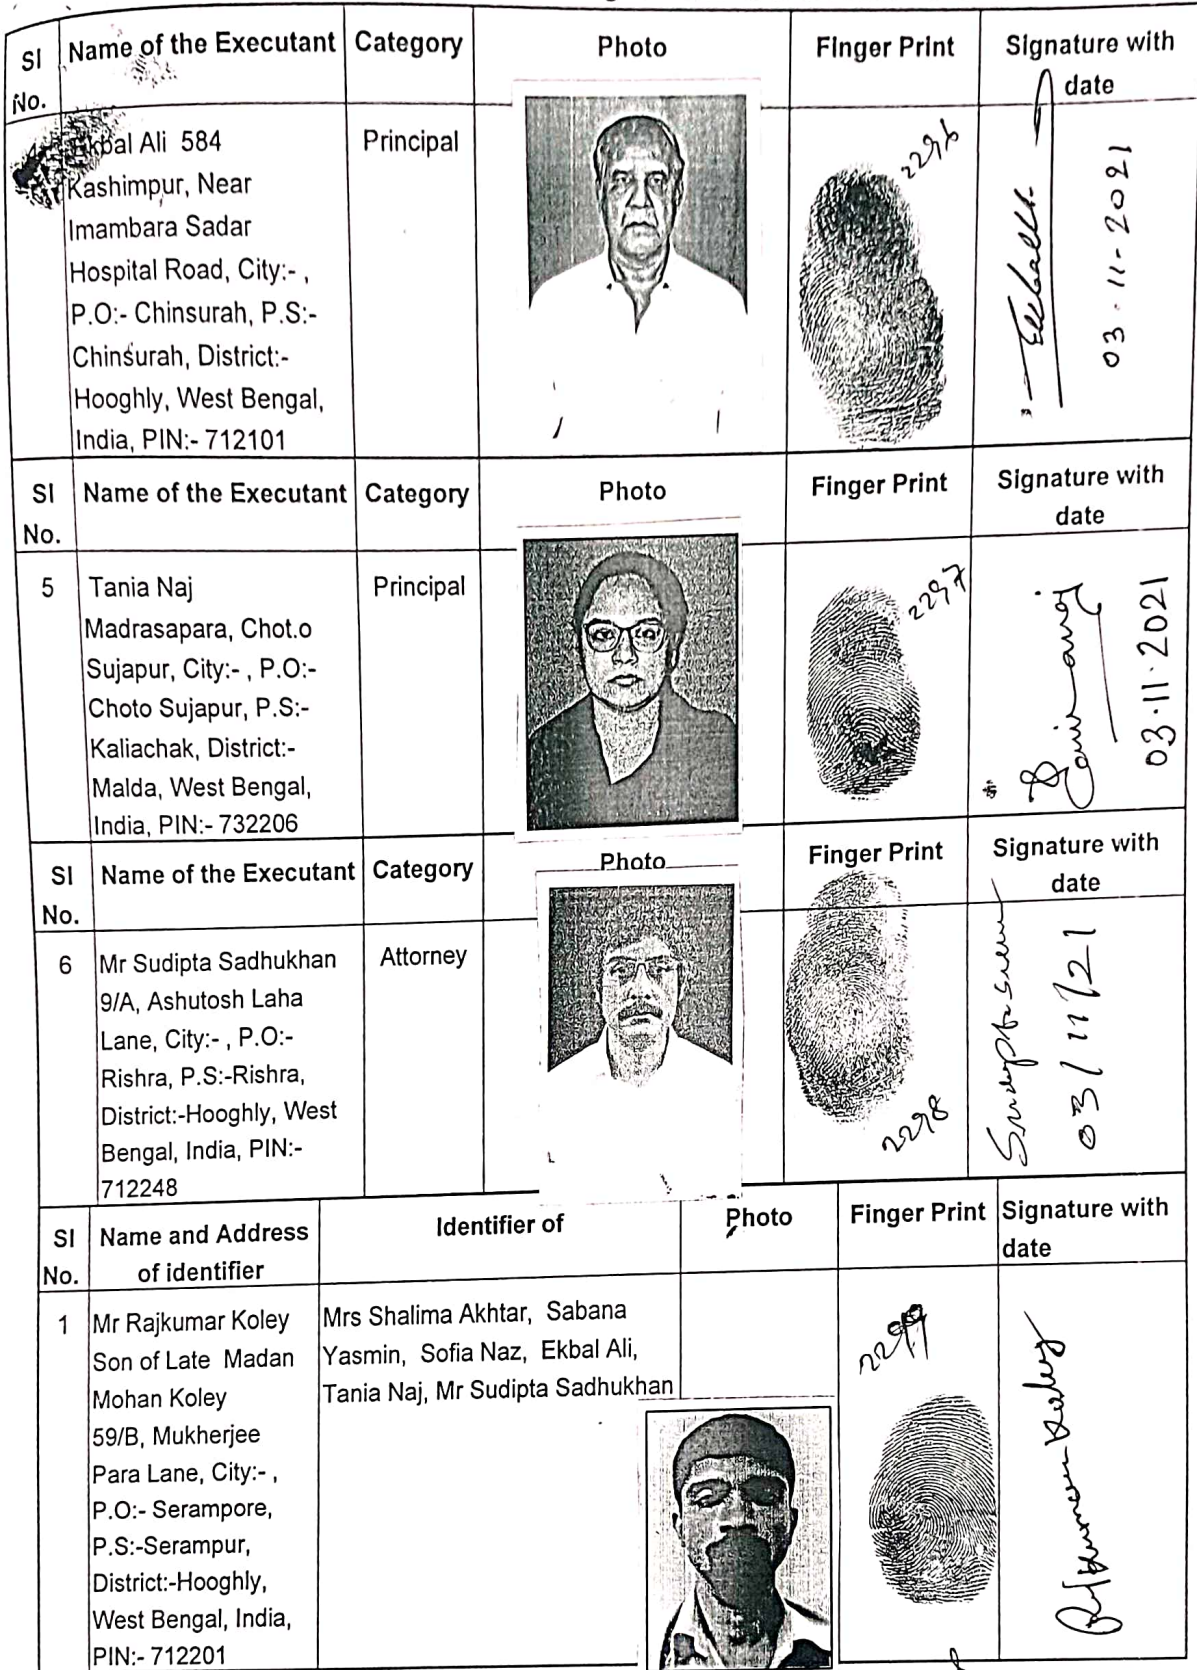 Sl
No.
Name of the Executant
Category
Photo
Finger Print
Signature with
date
4
Ekbal Ali 584
Kashimpur, Near
Imambara Sadar
Hospital Road, City:- ,
P.O:- Chinsurah, P.S:-
Chinsurah, District:-
Hooghly, West Bengal,
India, PIN:- 712101
Principal
2296
03.11-2021
Sl
No.
Name of the Executant
Category
Photo
Finger Print
Signature with
date
5
Tania Naj
Madrasapara, Chot.o
Sujapur, City:- , P.O:-
Choto Sujapur, P.S:-
Kaliachak, District:-
Malda, West Bengal,
India, PIN:- 732206
Principal
2297
03.11.2021
Sl
No.
Name of the Executant
Category
Photo
Finger Print
Signature with
date
6
Mr Sudipta Sadhukhan
9/A, Ashutosh Laha
Lane, City:- , P.O:-
Rishra, P.S:-Rishra,
District:-Hooghly, West
Bengal, India, PIN:-
712248
Attorney
2298
03/11/21
Sl
No.
Name and Address
of identifier
Identifier of
Photo
Finger Print
Signature with
date
1
Mr Rajkumar Koley
Son of Late Madan
Mohan Koley
59/B, Mukherjee
Para Lane, City:- ,
P.O:- Serampore,
P.S:-Serampur,
District:-Hooghly,
West Bengal, India,
PIN:- 712201
Mrs Shalima Akhtar, Sabana
Yasmin, Sofia Naz, Ekbal Ali,
Tania Naj, Mr Sudipta Sadhukhan
2299
Rajkumar Koley